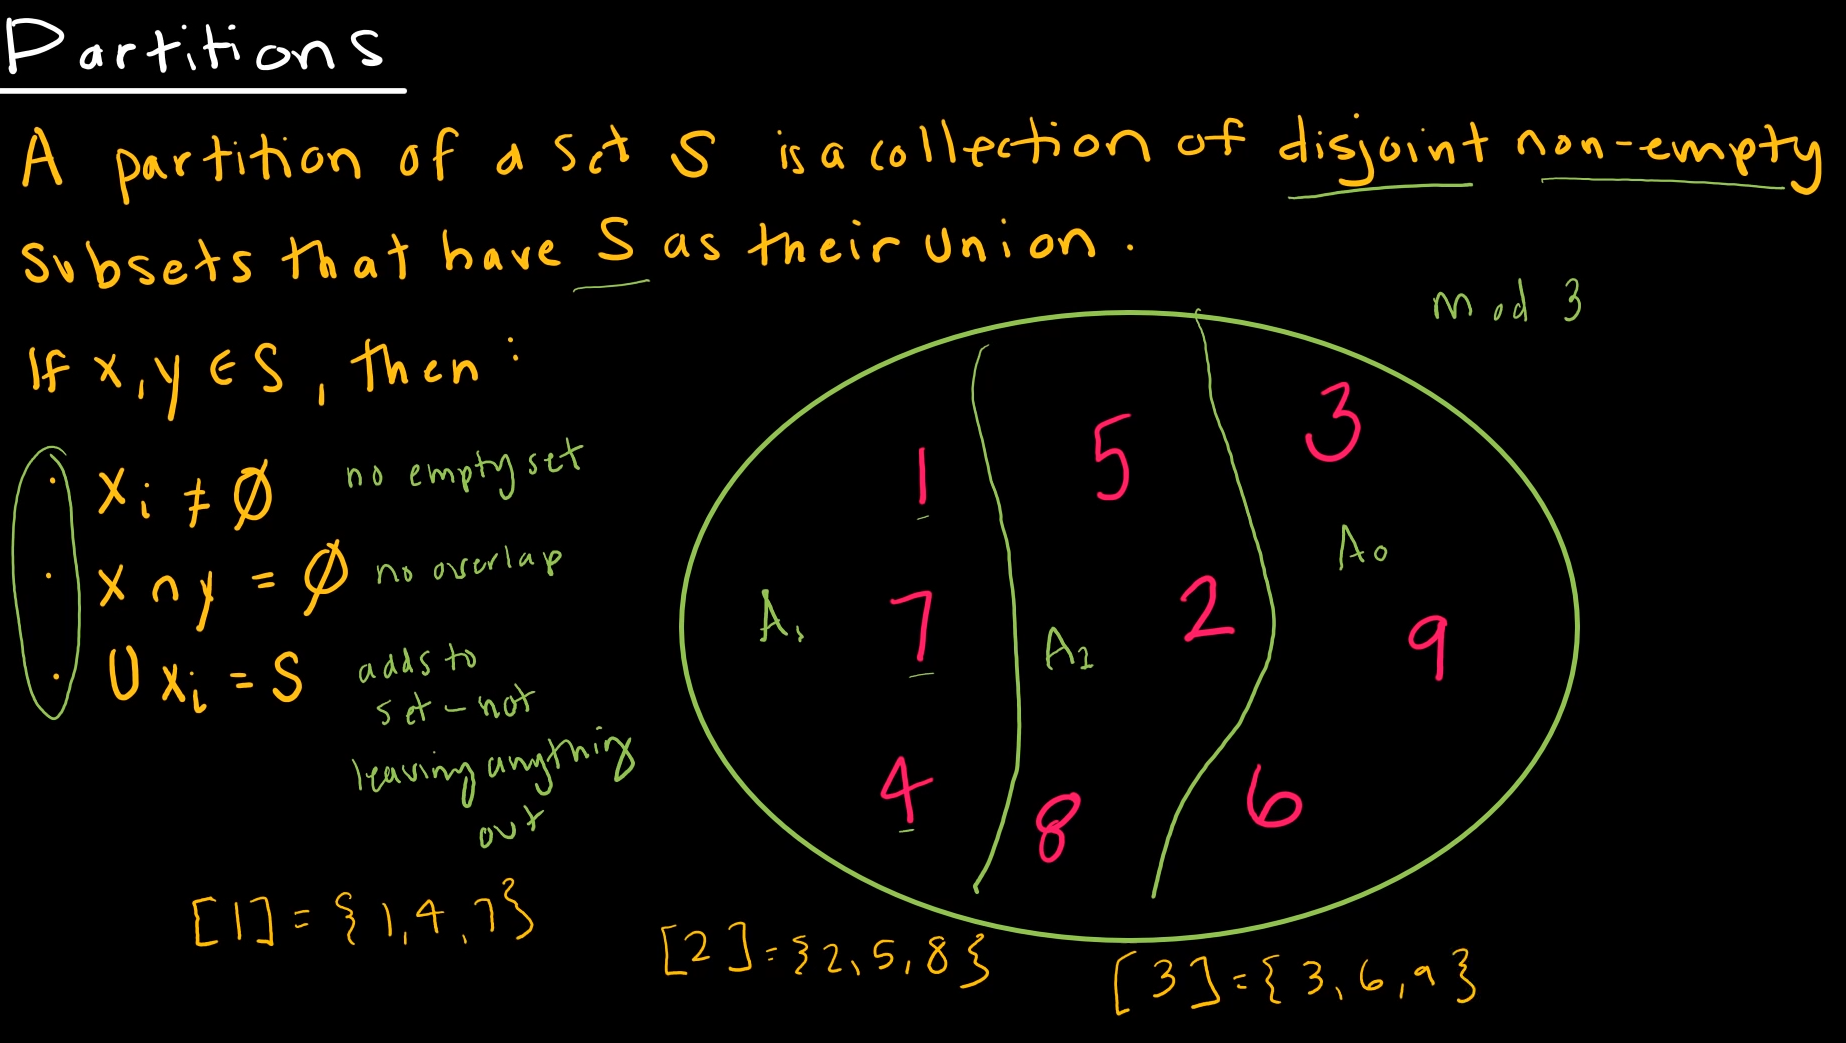 Partitions
A partition of a set S is a collection of disjoint non-empty
subsets that have S as their union.
mod 3
If x, y ∈ S, then:
· Xi ≠ ∅ no empty set
· X ∩ y = ∅ no overlap
· ∪ Xi = S adds to
set - not
leaving anything
out
1 5 3
A0
A1 7 A2 2 9
4 8 6
[1] = {1, 4, 7}
[2] = {2, 5, 8}
[3] = {3, 6, 9}